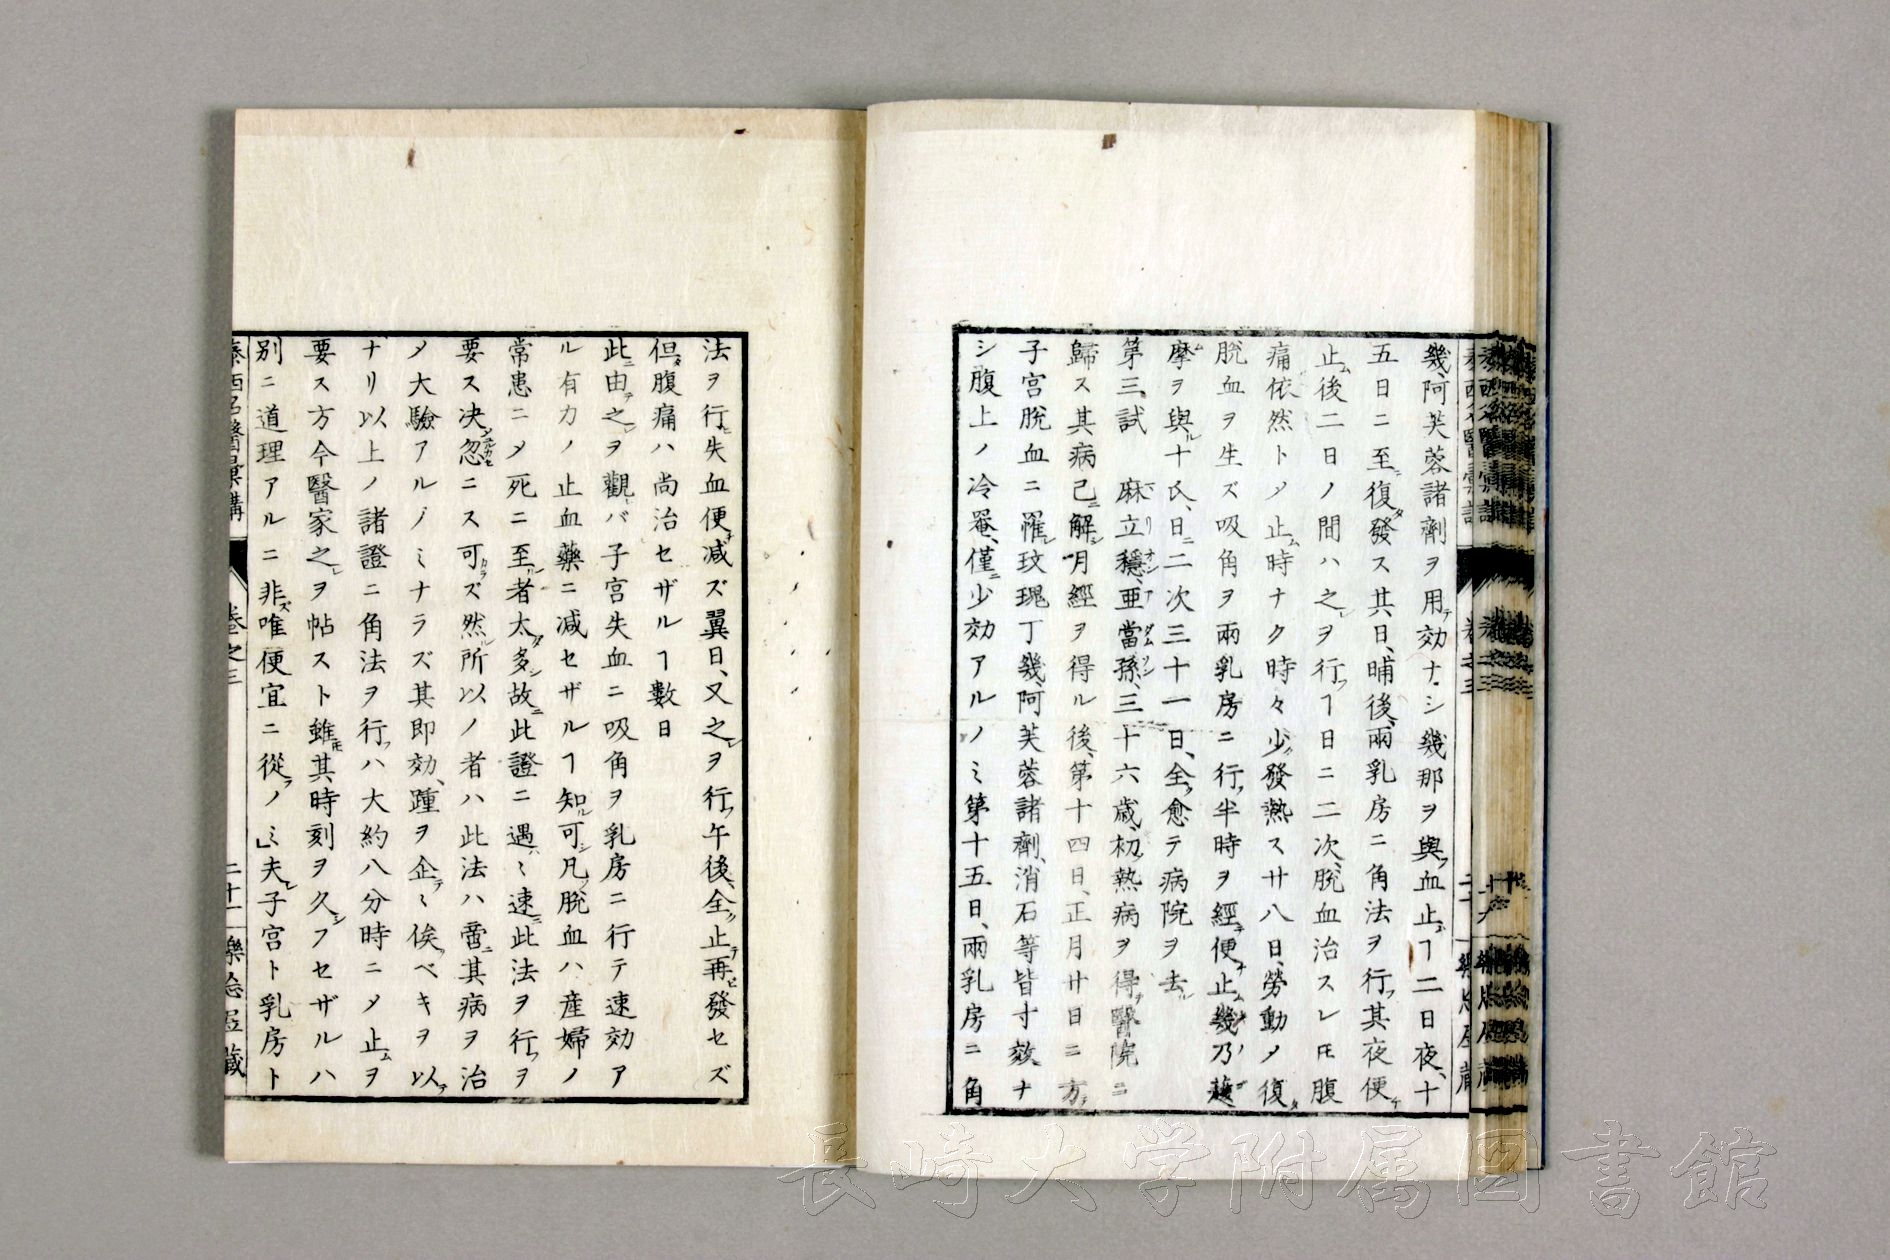 幾、阿芙蓉諸劑ヲ用テ効ナシ幾那ヲ與フ血止ヿ二日夜、十
五日ニ至ニ復タ發ス其日、晡後、兩乳房ニ角法ヲ行フ其夜便チ
止ム後二日ノ間ハ之レヲ行フヿ日ニ二次、脱血治スレ𪜈腹
痛依然トノ止ム時ナク時々少シ發熱ス廿八日、勞動メ復タ
脱血ヲ生ズ吸角ヲ兩乳房ニ行フ半時ヲ經テ便チ止ム幾乃
摩ヲ與ル十氏、日ニ二次三十一日、全ク愈テ病院ヲ去ル
第三、試　麻立穩、亜當孫、三十六歳、初メ熱病ヲ得テ醫院ニ
歸ス其病已ニ解シ月經ヲ得ル後、第十四日、正月廿日ニ方テ
子宮脱血ニ罹ル玟瑰丁幾、阿芙蓉諸劑、消石等皆寸效ナ
シ腹上ノ冷罨、僅ニ少効アルノミ第十五日、兩乳房ニ角
法ヲ行ヒ失血便チ減ズ翼日、又之レヲ行フ午後、全ク止テ再ヒ發セズ
但タ腹痛ハ尚治セザルヿ數日
此ニ由テ之レヲ觀レバ子宮失血ニ吸角ヲ乳房ニ行テ速効ア
ル有力ノ止血藥ニ减セザルヿ知ル可シ凡ソ脱血ハ産婦ノ
常患ニメ死ニ至ル者太タ多シ故ニ此證ニ遇ハミ速ニ此法ヲ行フヲ
要ス决忽ニス可カラズ然ル所以ノ者ハ此法ハ啻ニ其病ヲ治
メ大驗アルノミナラズ其即効、踵ヲ企テミ俟フベキヲ以テ
ナリ以上ノ諸證ニ角法ヲ行フハ大約八分時ニメ止ムヲ
要ス方今醫家之レヲ帖スト雖モ其時刻ヲ久シフセザルハ
別ニ道理アルニ非ズ唯便宜ニ從フノミ」夫レ子宮ト乳房ト
泰西名醫彙講　卷之三　二十一　樂
藏
長崎大学附属図書館